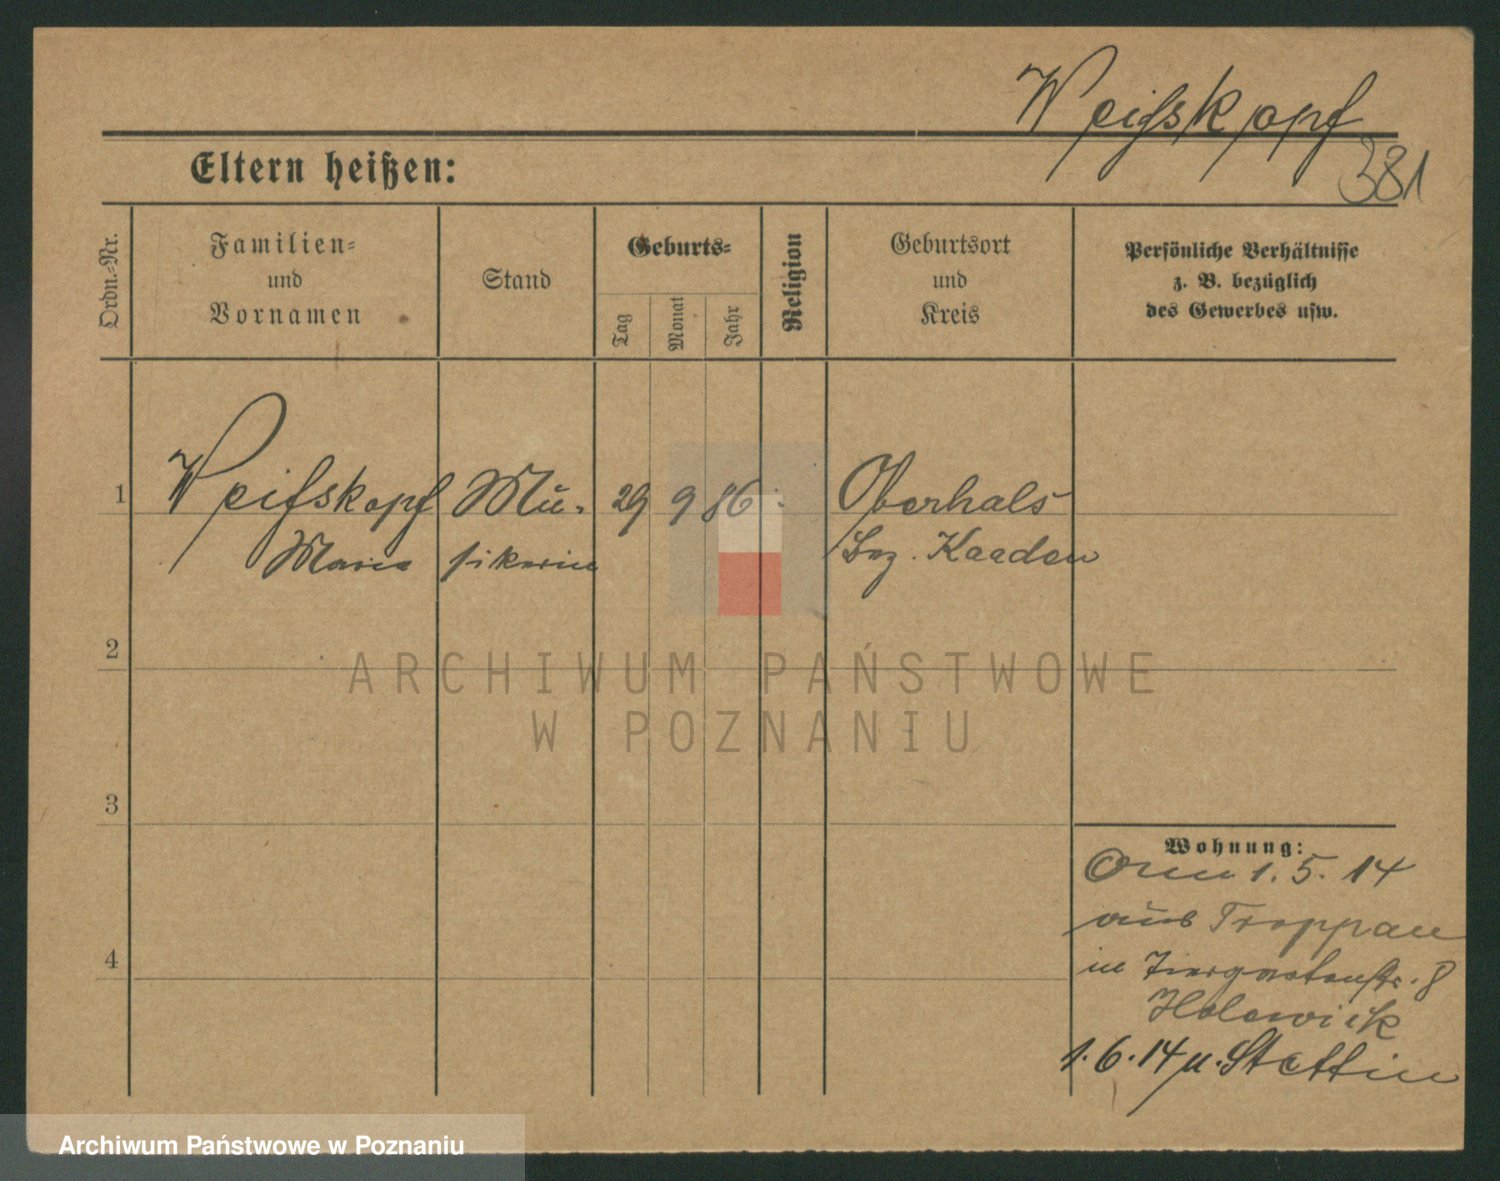 Weißkopf
381
Eltern heißen:
Ordn.-Nr.
Familien-
und
Vornamen
Stand
Geburts-
Tag
Monat
Jahr
Religion
Geburtsort
und
Kreis
Persönliche Verhältnisse
z. B. bezüglich
des Gewerbes usw.
1
Weißskopf
Marie
Mu-
sikerin
29
9
86
Oberhals
Bez. Kaaden
2
3
4
Wohnung:
1.5.14
aus Troppau
in Tiergartenstr. 8
1.6.14 n. Stettin
ARCHIWUM PAŃSTWOWE
W POZNANIU
Archiwum Państwowe w Poznaniu